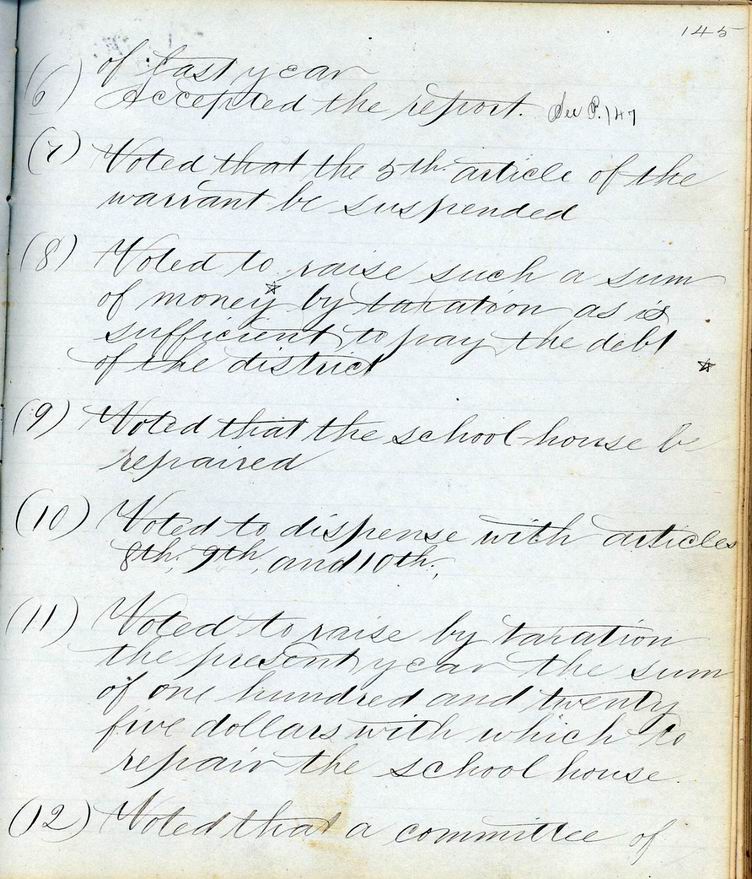 145
of last year
(6) Accepted the report. See P. 147
(7) Voted that the 5th article of the
warrant be suspended
(8) Voted to raise such a sum
of money ☆ by taxation as is
sufficient to pay the debt
of the district ☆
(9) Voted that the school-house be
repaired
(10) Voted to dispense with articles
8th, 9th, and 10th.
(11) Voted to raise by taxation
the present year the sum
of one hundred and twenty
five dollars with which to
repair the school house.
(12) Voted that a committee of